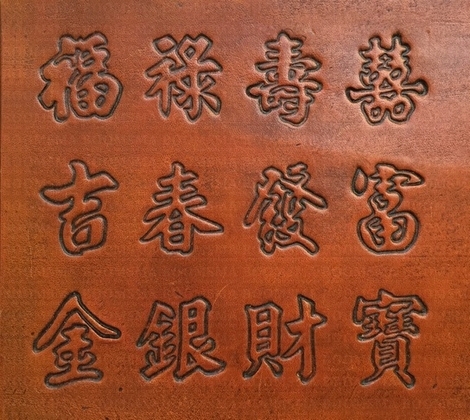 福祿壽囍
吉春發富
金銀財寶